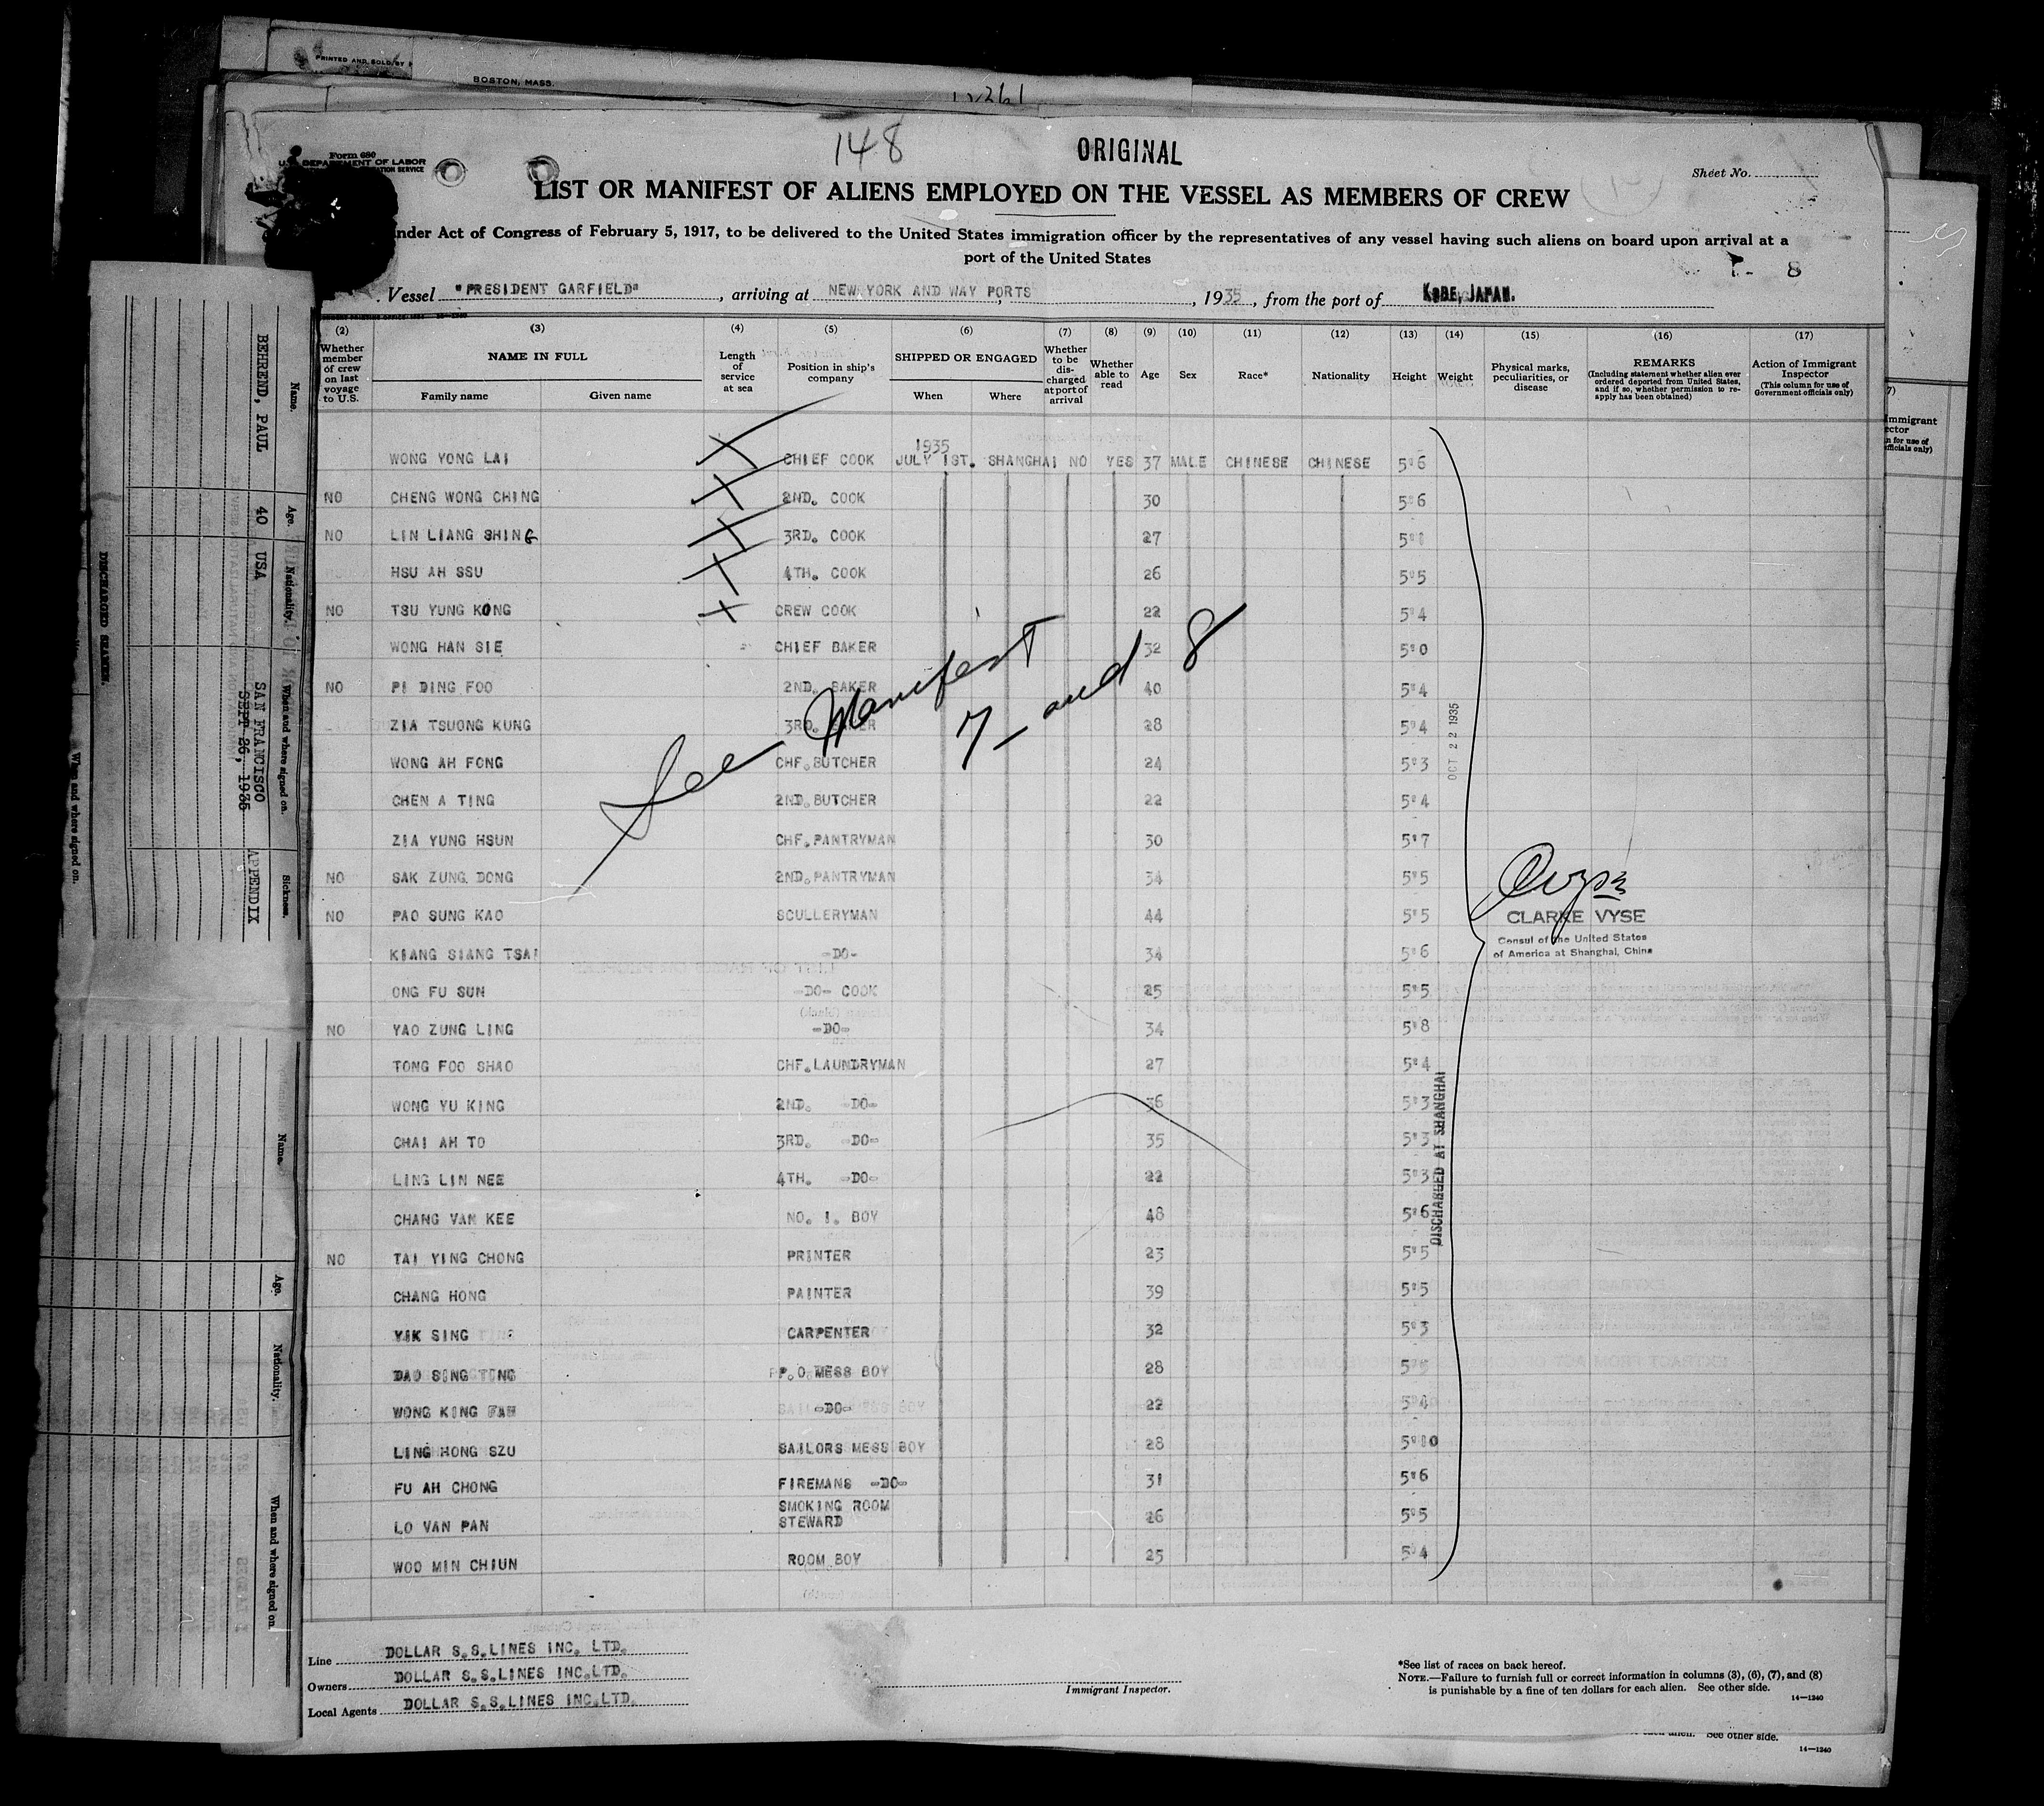 PRINTED AND SOLD BY
BOSTON, MASS.
148
ORIGINAL
Form 680
U. S. DEPARTMENT OF LABOR
Sheet No.
LIST OR MANIFEST OF ALIENS EMPLOYED ON THE VESSEL AS MEMBERS OF CREW
under Act of Congress of February 5, 1917, to be delivered to the United States immigration officer by the representatives of any vessel having such aliens on board upon arrival at a
port of the United States
8
Vessel "PRESIDENT GARFIELD", arriving at NEW YORK AND WAY PORTS, 1935, from the port of KOBE, JAPAN.
(2) (3) (4) (5) (6) (7) (8) (9) (10) (11) (12) (13) (14) (15) (16) (17)
Whether member of crew on last voyage to U.S.
NAME IN FULL
Family name Given name
Length of service at sea
Position in ship's company
SHIPPED OR ENGAGED
When Where
Whether to be discharged at port of arrival
Whether able to read
Age
Sex
Race*
Nationality
Height
Weight
Physical marks, peculiarities, or disease
REMARKS
(Including statement whether alien ever ordered deported from United States, and if so, whether permission to reapply has been obtained)
Action of Immigrant Inspector
(This column for use of Government officials only)
1935
WONG YONG LAI CHIEF COOK JULY 1ST. SHANGHAI NO YES 37 MALE CHINESE CHINESE 5"6
NO CHENG WONG CHING 2ND. COOK 30 5"6
NO LIN LIANG SHING 3RD. COOK 27
HSU AH SSU 4TH. COOK 26 5"5
NO TSU YUNG KONG CREW COOK 22 5"4
WONG HAN SIE CHIEF BAKER 32 5"0
NO PI DING FOO 2ND. BAKER 40 5"4
ZIA TSUONG KUNG 3RD. BAKER 28 5"4
WONG AH FONG CHF. BUTCHER 24 5"3
CHEN A TING 2ND. BUTCHER 22 5"4
ZIA YUNG HSUN CHF. PANTRYMAN 30 5"7
NO SAK ZUNG DONG 2ND. PANTRYMAN 34 5"5
NO PAO SUNG KAO SCULLERYMAN 44 5"5
KIANG SIANG TSAI -DO- 34 5"6
ONG FU SUN -DO- COOK 25 5"5
NO YAO ZUNG LING -DO- 34 5"8
TONG FOO SHAO CHF. LAUNDRYMAN 27 5"4
WONG YU KING 2ND. -DO- 36 5"3
CHAI AH TO 3RD. -DO- 35 5"3
LING LIN NEE 4TH. -DO- 22 5"3
CHANG VAN KEE NO. 1. BOY 48 5"6
NO TAI YING CHONG PRINTER 23 5"5
CHANG HONG PAINTER 39 5"5
YIK SING CARPENTER 32 5"3
DAO SING TING P.O. MESS BOY 28
WONG KING FAH -DO- 22
LING HONG SZU SAILORS MESS BOY 28 5"10
FU AH CHONG FIREMANS -DO- 31 5"6
LO VAN PAN SMOKING ROOM STEWARD 26 5"5
WOO MIN CHIUN ROOM BOY 25 5"4
See Manifest
7 and 8
OCT 22 1935
DISCHARGED AT SHANGHAI
CLARKE VYSE
Consul of the United States
of America at Shanghai, China
Line DOLLAR S.S.LINES INC. LTD.
Owners DOLLAR S.S.LINES INC.LTD.
Local Agents DOLLAR S.S.LINES INC.LTD.
Immigrant Inspector.
*See list of races on back hereof.
NOTE.—Failure to furnish full or correct information in columns (3), (6), (7), and (8)
is punishable by a fine of ten dollars for each alien. See other side.
14—1240
See other side.
14—1240
DISCHARGED SEAMEN.
Name. Age. Nationality. When and where signed on. Sickness.
BEHREND, PAUL 40 USA SAN FRANCISCO SEPT 26, 1935 APPENDIX
Name. Age. Nationality. When and where signed on.
When and where signed on.